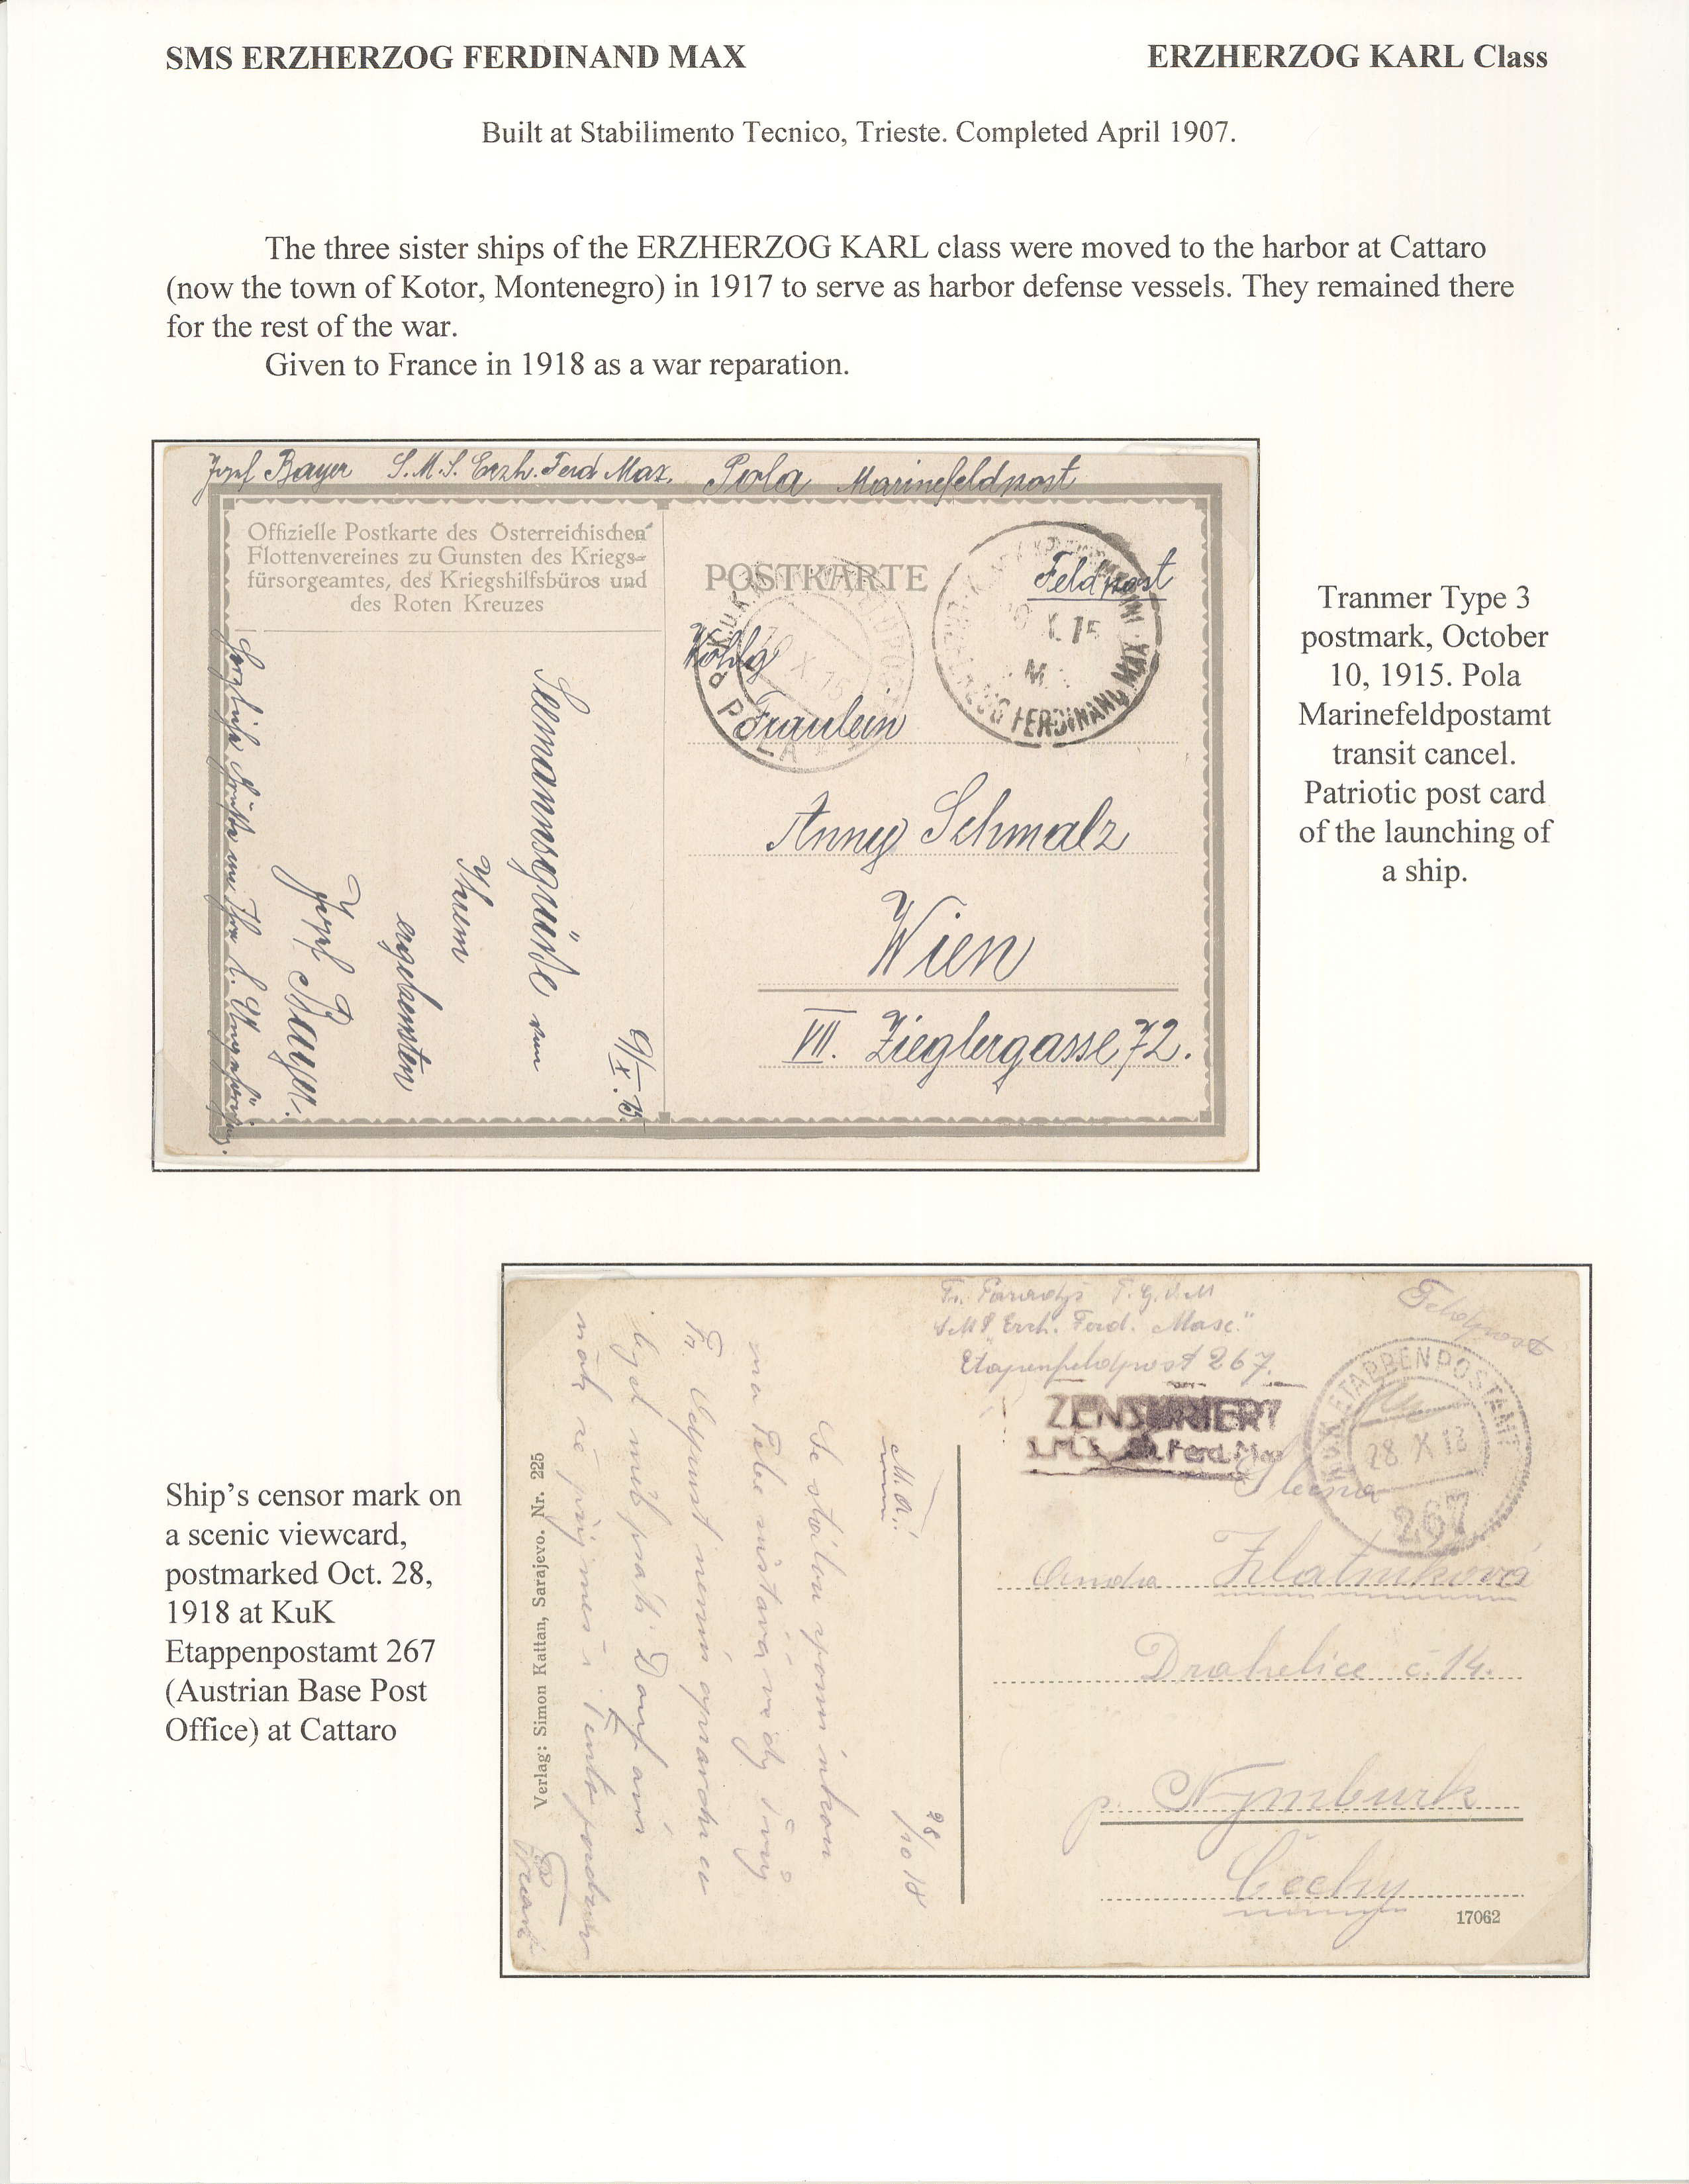 SMS ERZHERZOG FERDINAND MAX
ERZHERZOG KARL Class
Built at Stabilimento Tecnico, Trieste. Completed April 1907.
The three sister ships of the ERZHERZOG KARL class were moved to the harbor at Cattaro
(now the town of Kotor, Montenegro) in 1917 to serve as harbor defense vessels. They remained there
for the rest of the war.
Given to France in 1918 as a war reparation.
Josef Bayer S.M.S. Erzh. Ferd Max. Pola Marinefeldpost
Offizielle Postkarte des Österreichischen
Flottenvereines zu Gunsten des Kriegs-
fürsorgeamtes, des Kriegshilfsbüros und
des Roten Kreuzes
POSTKARTE
Feldpost
K.u.K.
X 15
POLA
X 15
FERDINAND MAX
Wohlg
Fräulein
Anny Schmalz
Wien
VII. Zieglergasse 72.
9/X. 15
Seemannsgrüße vom
Ihnem
ergebensten
Josef Bayer.
Herzliche Grüße an Ihre l. Angehörig.
Tranmer Type 3
postmark, October
10, 1915. Pola
Marinefeldpostamt
transit cancel.
Patriotic post card
of the launching of
a ship.
Ship's censor mark on
a scenic viewcard,
postmarked Oct. 28,
1918 at KuK
Etappenpostamt 267
(Austrian Base Post
Office) at Cattaro
Feldpost
Fr.
SMS "Erzh. Ferd. Max."
Etapenfeldpost 267.
ZENSURIERT
S.M.S. Erh. Ferd. Max
K.u.K. ETAPPENPOSTAMT
28 X 18
267
Slečna
Zlatníková
Drahelice č. 14.
p. Nymburk
Čechy
17062
28/10 18
Má
Se stálou vpomínkou
na Tebe zůstává vždy Tvůj
Fr.
Verlag: Simon Kattan, Sarajevo. Nr. 225